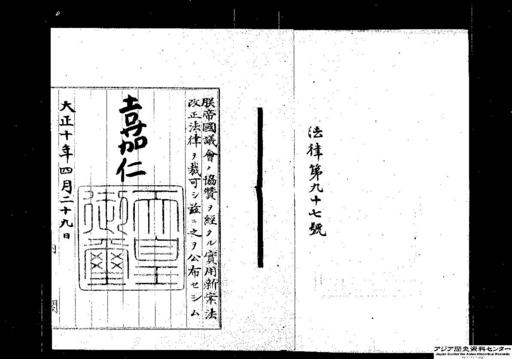 法律第九十七號
朕帝國議會ノ協贊ヲ經タル實用新案法
改正法律ヲ裁可シ茲ニ之ヲ公布セシム
嘉仁
天皇御璽
大正十年四月二十九日
アジア歴史資料センター
Japan Center for Asian Historical Records